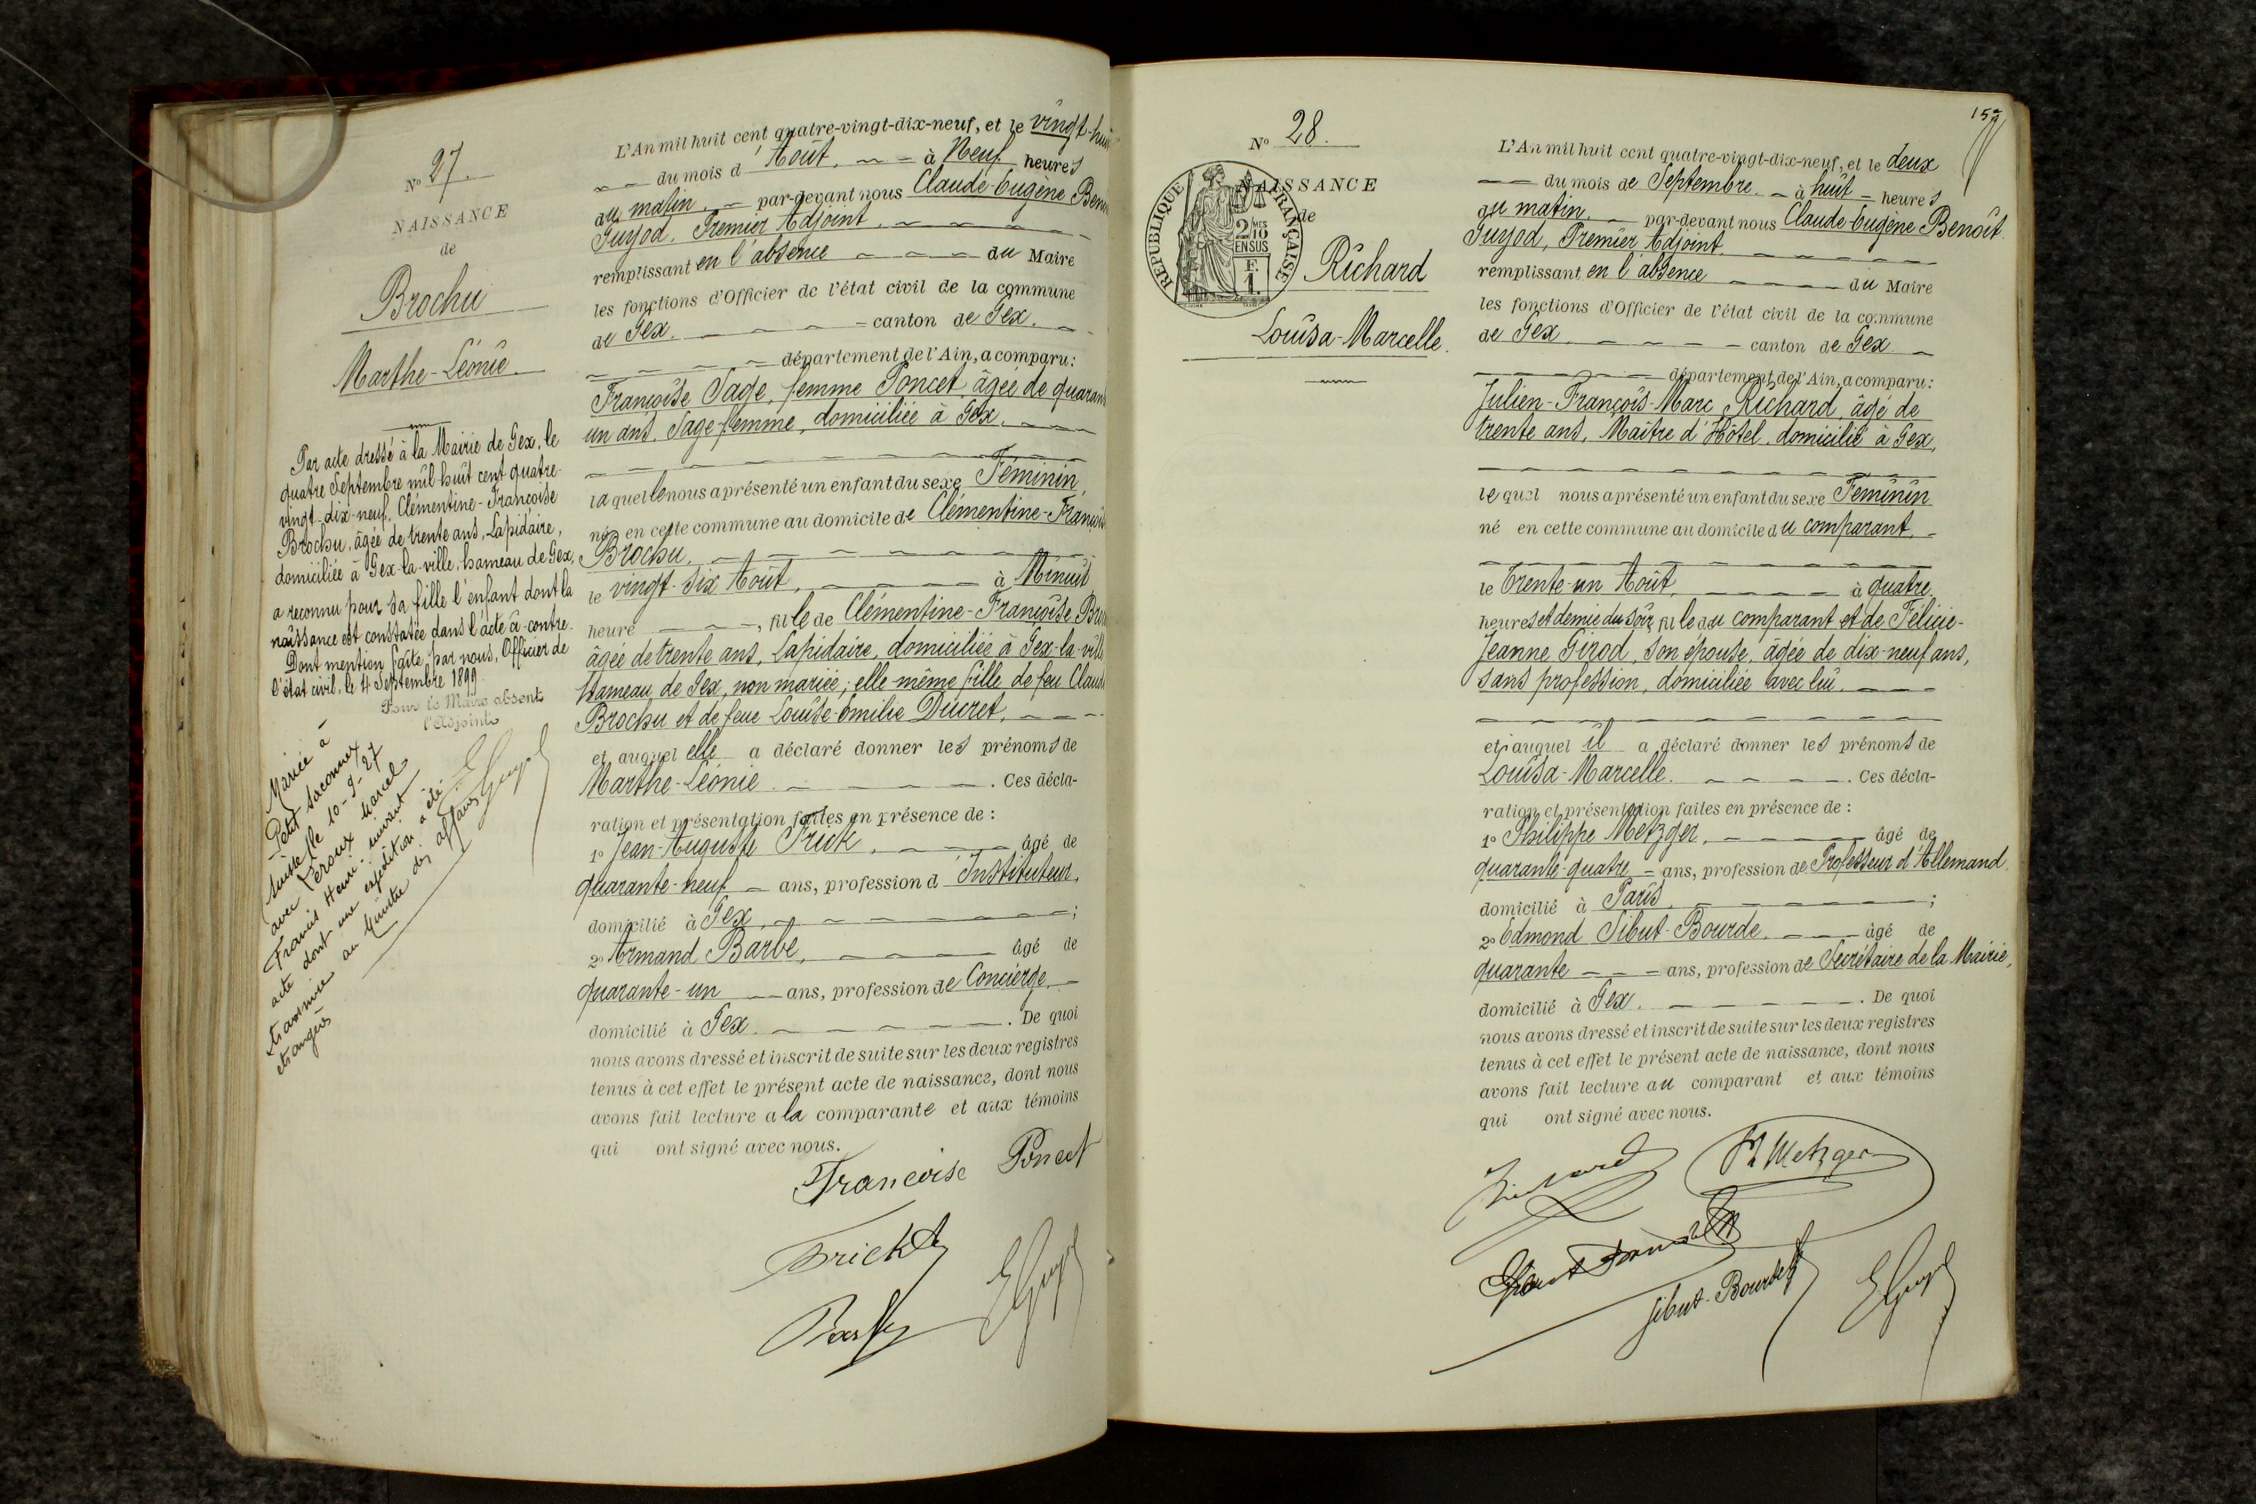 N° 27.
NAISSANCE
de
Brochu
Marthe-Léonie
Par acte dressé à la Mairie de Gex, le
quatre Septembre mil-huit cent quatre-
vingt-dix-neuf, Clémentine-Françoise
Brochu, âgée de trente ans, Lapidaire,
domiciliée à Gex-la-ville, hameau de Gex,
a reconnu pour sa fille l'enfant dont la
naissance est constatée dans l'acte ci-contre.
Dont mention faite par nous, Officier de
l'état civil, le 4 Septembre 1899
Pour le Maire absent
l'Adjoint
E Guyod
Mariée à
Petit Saconnex
Suisse le 10-9-27
avec Peroux Marcel
Francis Henri suivant
acte dont une expédition a été
transmise au Ministre des affaires
étrangères
L'An mil huit cent quatre-vingt-dix-neuf, et le vingt-huit
du mois d'Août, à Neuf heures
du matin, par-devant nous Claude-Eugène Benoit
Guyod, Premier Adjoint,
remplissant en l'absence du Maire
les fonctions d'Officier de l'état civil de la commune
de Gex. canton de Gex.
département de l'Ain, a comparu:
Françoise Sage, femme Poncet, âgée de quarante
un ans, Sage-femme, domiciliée à Gex.
laquelle nous a présenté un enfant du sexe Féminin,
né en cette commune au domicile de Clémentine-Françoise
Brochu,
le vingt-six Août, à Minuit
heure, fille de Clémentine-Françoise Brochu
âgée de trente ans, Lapidaire, domiciliée à Gex-la-ville
Hameau de Gex, non mariée; elle même fille de feu Claude
Brochu et de feue Louise-émilie Ducret.
et auquel elle a déclaré donner les prénoms de
Marthe-Léonie. Ces décla-
ration et présentation faites en présence de :
1° Jean-Auguste Frick, âgé de
quarante-neuf ans, profession d'Instituteur,
domicilié à Gex, ;
2° Armand Barbe, âgé de
quarante-un ans, profession de Concierge,
domicilié à Gex. De quoi
nous avons dressé et inscrit de suite sur les deux registres
tenus à cet effet le présent acte de naissance, dont nous
avons fait lecture a la comparante et aux témoins
qui ont signé avec nous.
Francoise Poncet
Frick
Barbe
E Guyod
157
N° 28.
NAISSANCE
de
RÉPUBLIQUE FRANÇAISE
2/10 MES
EN SUS
F.
1.
Richard
Louisa-Marcelle.
L'An mil huit cent quatre-vingt-dix-neuf, et le deux
du mois de Septembre à huit heures
du matin. par-devant nous Claude-Eugène Benoit
Guyod, Premier Adjoint
remplissant en l'absence du Maire
les fonctions d'Officier de l'état civil de la commune
de Gex canton de Gex
département de l'Ain, a comparu:
Julien-François-Marc Richard, âgé de
trente ans, Maître d'Hôtel, domicilié à Gex,
lequel nous a présenté un enfant du sexe Feminin
né en cette commune au domicile du comparant.
le Trente-un Août, à quatre
heures et demie du soir, fille du comparant et de Félicie-
Jeanne Girod, son épouse, âgée de dix-neuf ans,
sans profession, domiciliée avec lui.
et auquel il a déclaré donner les prénoms de
Louisa-Marcelle. Ces décla-
ration et présentation faites en présence de :
1° Philippe Metzger, âgé de
quarante-quatre ans, profession de Professeur d'Allemand,
domicilié à Paris ;
2° Edmond Sibut-Bourde, âgé de
quarante ans, profession de Secrétaire de la Mairie,
domicilié à Gex. De quoi
nous avons dressé et inscrit de suite sur les deux registres
tenus à cet effet le présent acte de naissance, dont nous
avons fait lecture au comparant et aux témoins
qui ont signé avec nous.
Richard
Ph Metzger
Sibut-Bourde
E Guyod